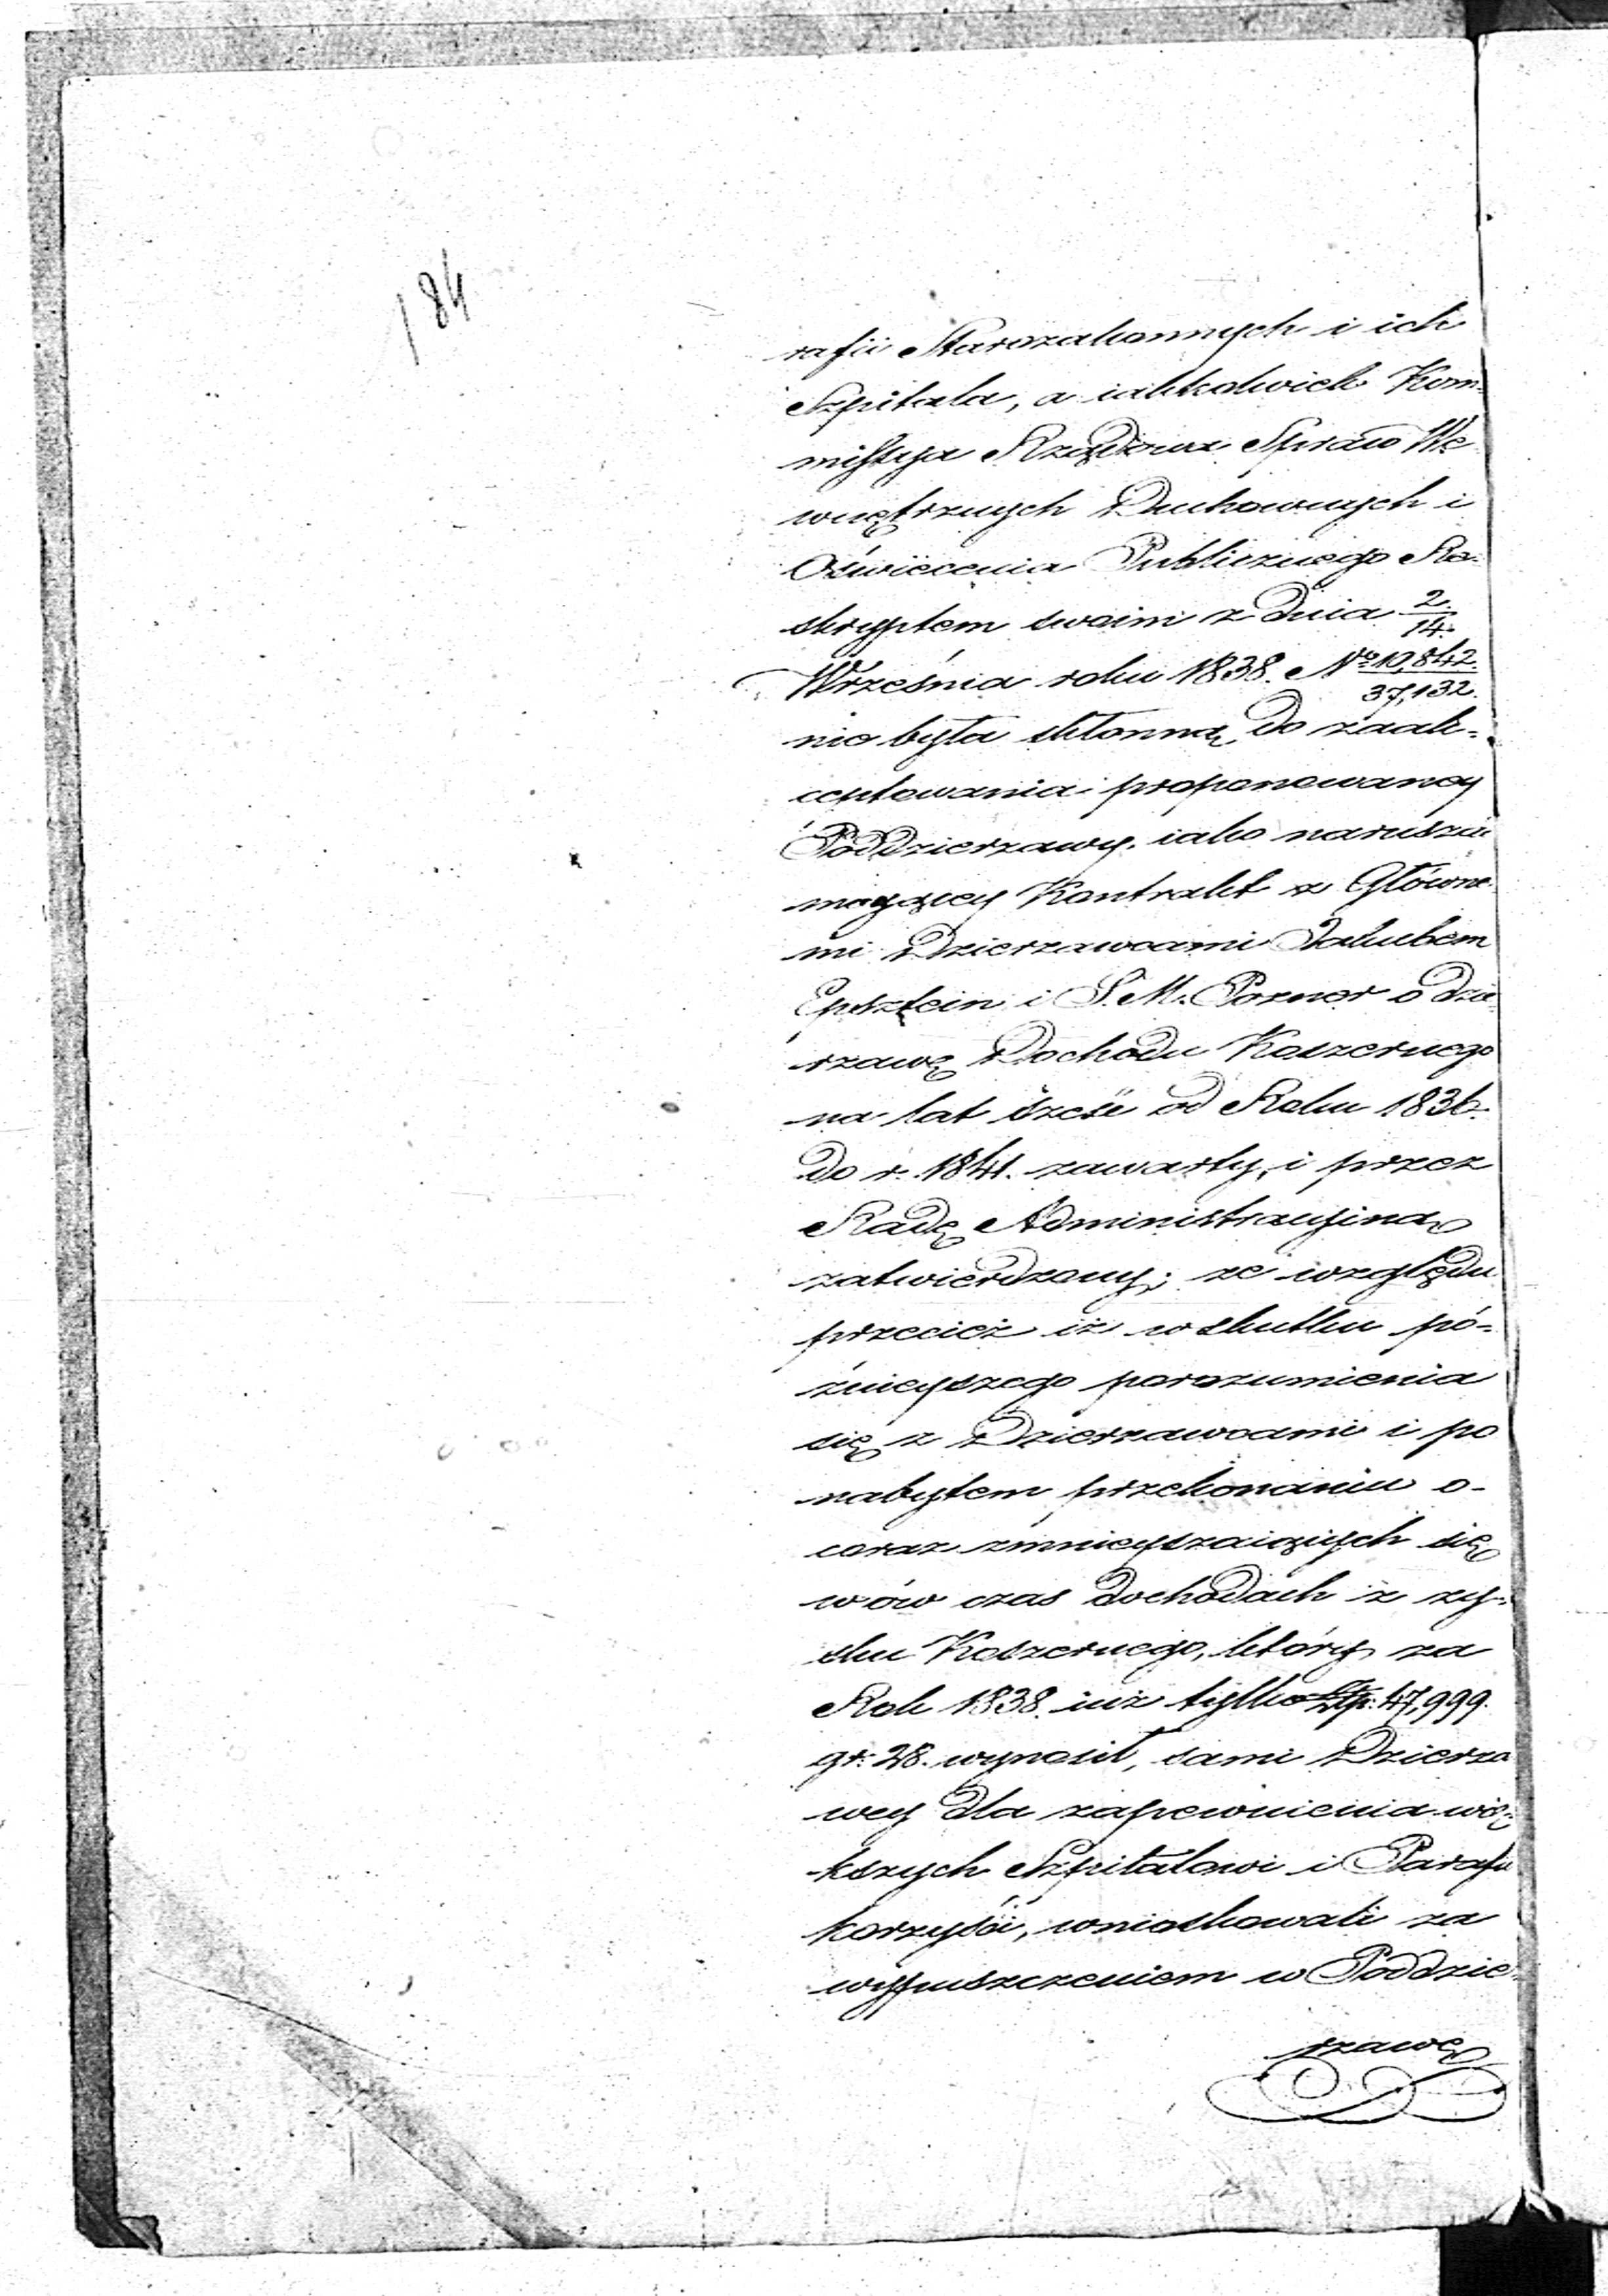 184
rafii Starozakonnych i ich
Szpitala, a iakkolwiek Kom-
missya Rządowa Spraw We
wnętrznych Duchownych i
Oświecenia Publicznego Re-
skryptem swoim z dnia 2/14
Września roku 1838. No 10,842/37,132.
nie była skłonną do zaak-
ceptowania proponowaney
Poddzierzawy, iako narusza
maiącey Kontrakt z Główne
mi Dzierzawcami Jakubem
Epsztein i S. M. Pozner o dzie
rzawę Dochodu Koszernego
na lat sześć od Roku 1836.
do r. 1841. zawarty, i przez
Radę Administracyiną
zatwierdzony; ze względu
przecież iż w skutku pó-
źnieyszego porozumienia
się z Dzierzawcami i po
nabytem przekonaniu o-
coraz zmnieyszaiących się
wów czas dochodach z zy-
sku Koszernego, który za
Rok 1838. iuż tylko Złp. 47,999.
gr. 28. wynosił, sami Dzierza
wcy dla zapewnienia wię-
kszych Szpitalowi i Parafii
korzyści, wnioskowali za
wypuszczeniem w Poddzie-
rzawę